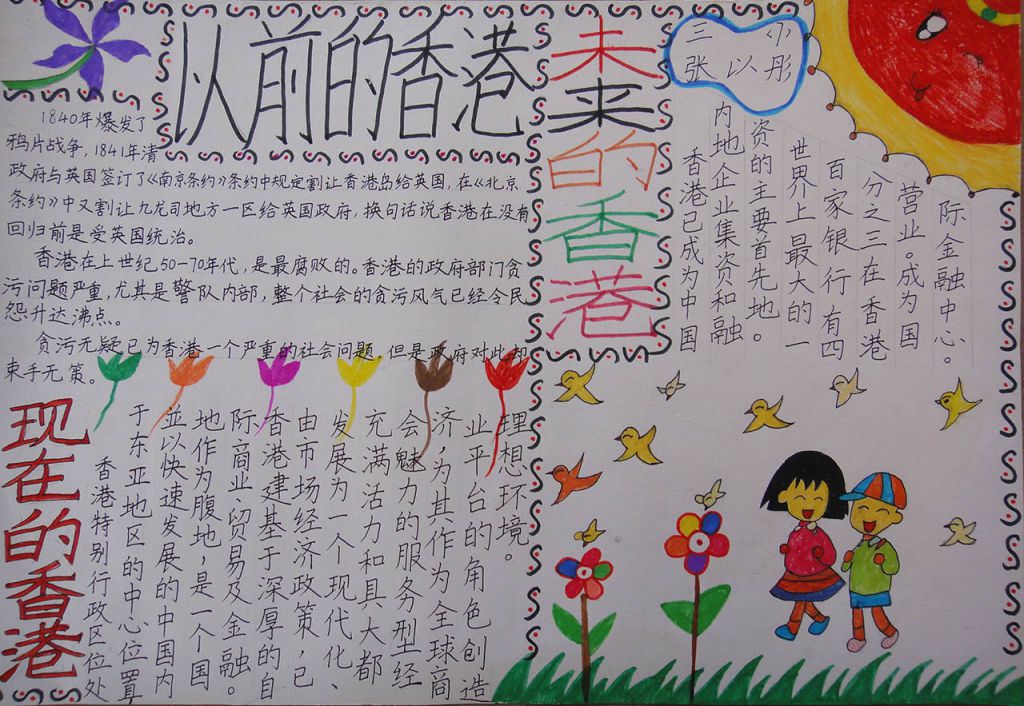 以前的香港
1840年爆发了
鸦片战争，1841年清
政府与英国签订了《南京条约》条约中规定割让香港岛给英国，在《北京
条约》中又割让九龙司地方一区给英国政府，换句话说香港在没有
回归前是受英国统治。
香港在上世纪50-70年代，是最腐败的。香港的政府部门贪
污问题严重，尤其是警队内部，整个社会的贪污风气已经令民
怨升达沸点。
贪污无疑已为香港一个严重的社会问题，但是政府对此却
束手无策。
现在的香港
香港特别行政区位处
于东亚地区的中心位置
並以快速发展的中国内
地作为腹地，是一个国
际商业、贸易及金融。
香港建基于深厚的自
由市场经济政策，已
发展为一个现代化、
充满活力和具大都
会魅力的服务型经
济，为其作为全球商
业平台的角色创造
理想环境。
未来的香港
三小
张以彤
香港已成为中国
内地企业集资和融
资的主要首先地。
世界上最大的一
百家银行有四
分之三在香港
营业。成为国
际金融中心。